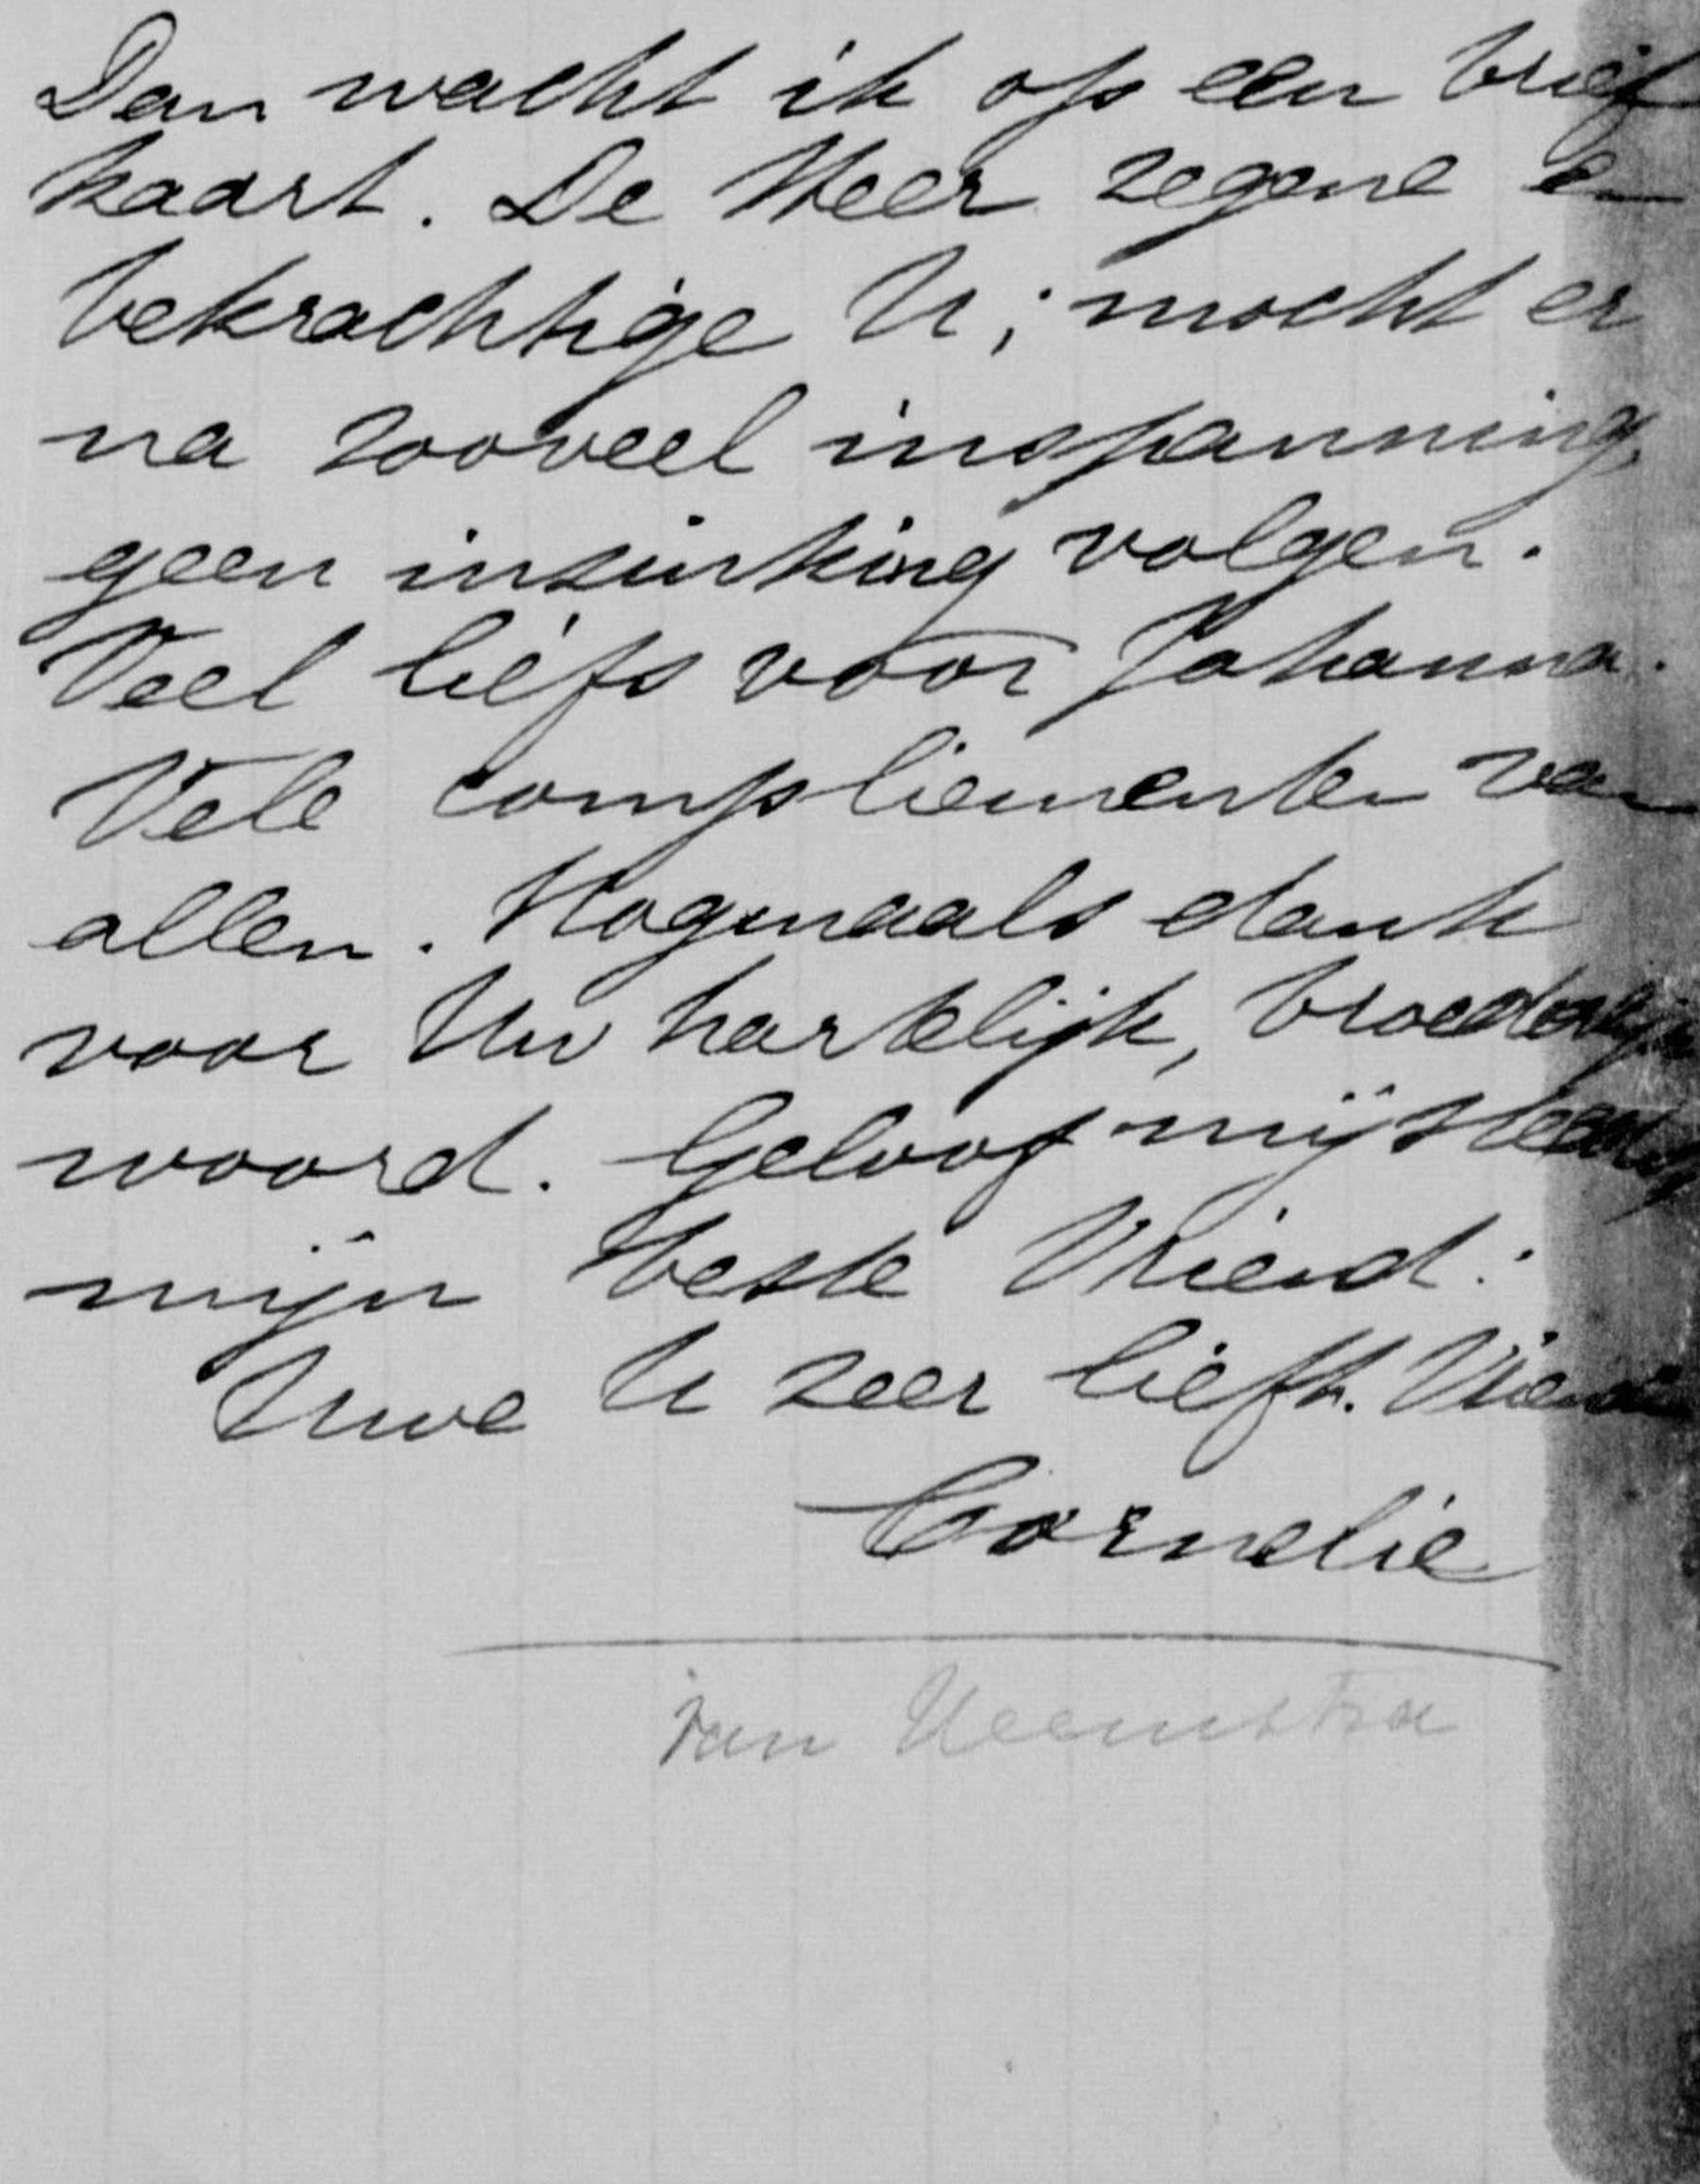 Dan wacht ik op een brief
kaart. De Heer zegene en
bekrachtige U; mocht er
na zooveel inspanning,
geen inzinking volgen.
Veel liefs voor Johanna.
Vele complimenten van
allen. Nogmaals dank
voor Uw hartelijk, broederlijk
woord. Geloof mij steeds
mijn beste Vriend:
Uwe U zeer liefh. Vriendin
Cornelie
van Heemstra